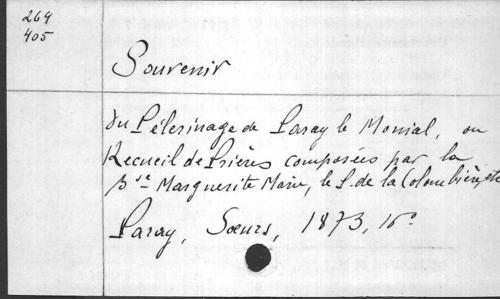 264
405
Souvenir
du Pélerinage de Paray le Monial, ou
Recueil de Prières composées par la
Bse Marguerite Marie, le P. de la Colombière, etc
Paray, Sœurs, 1873, 16°